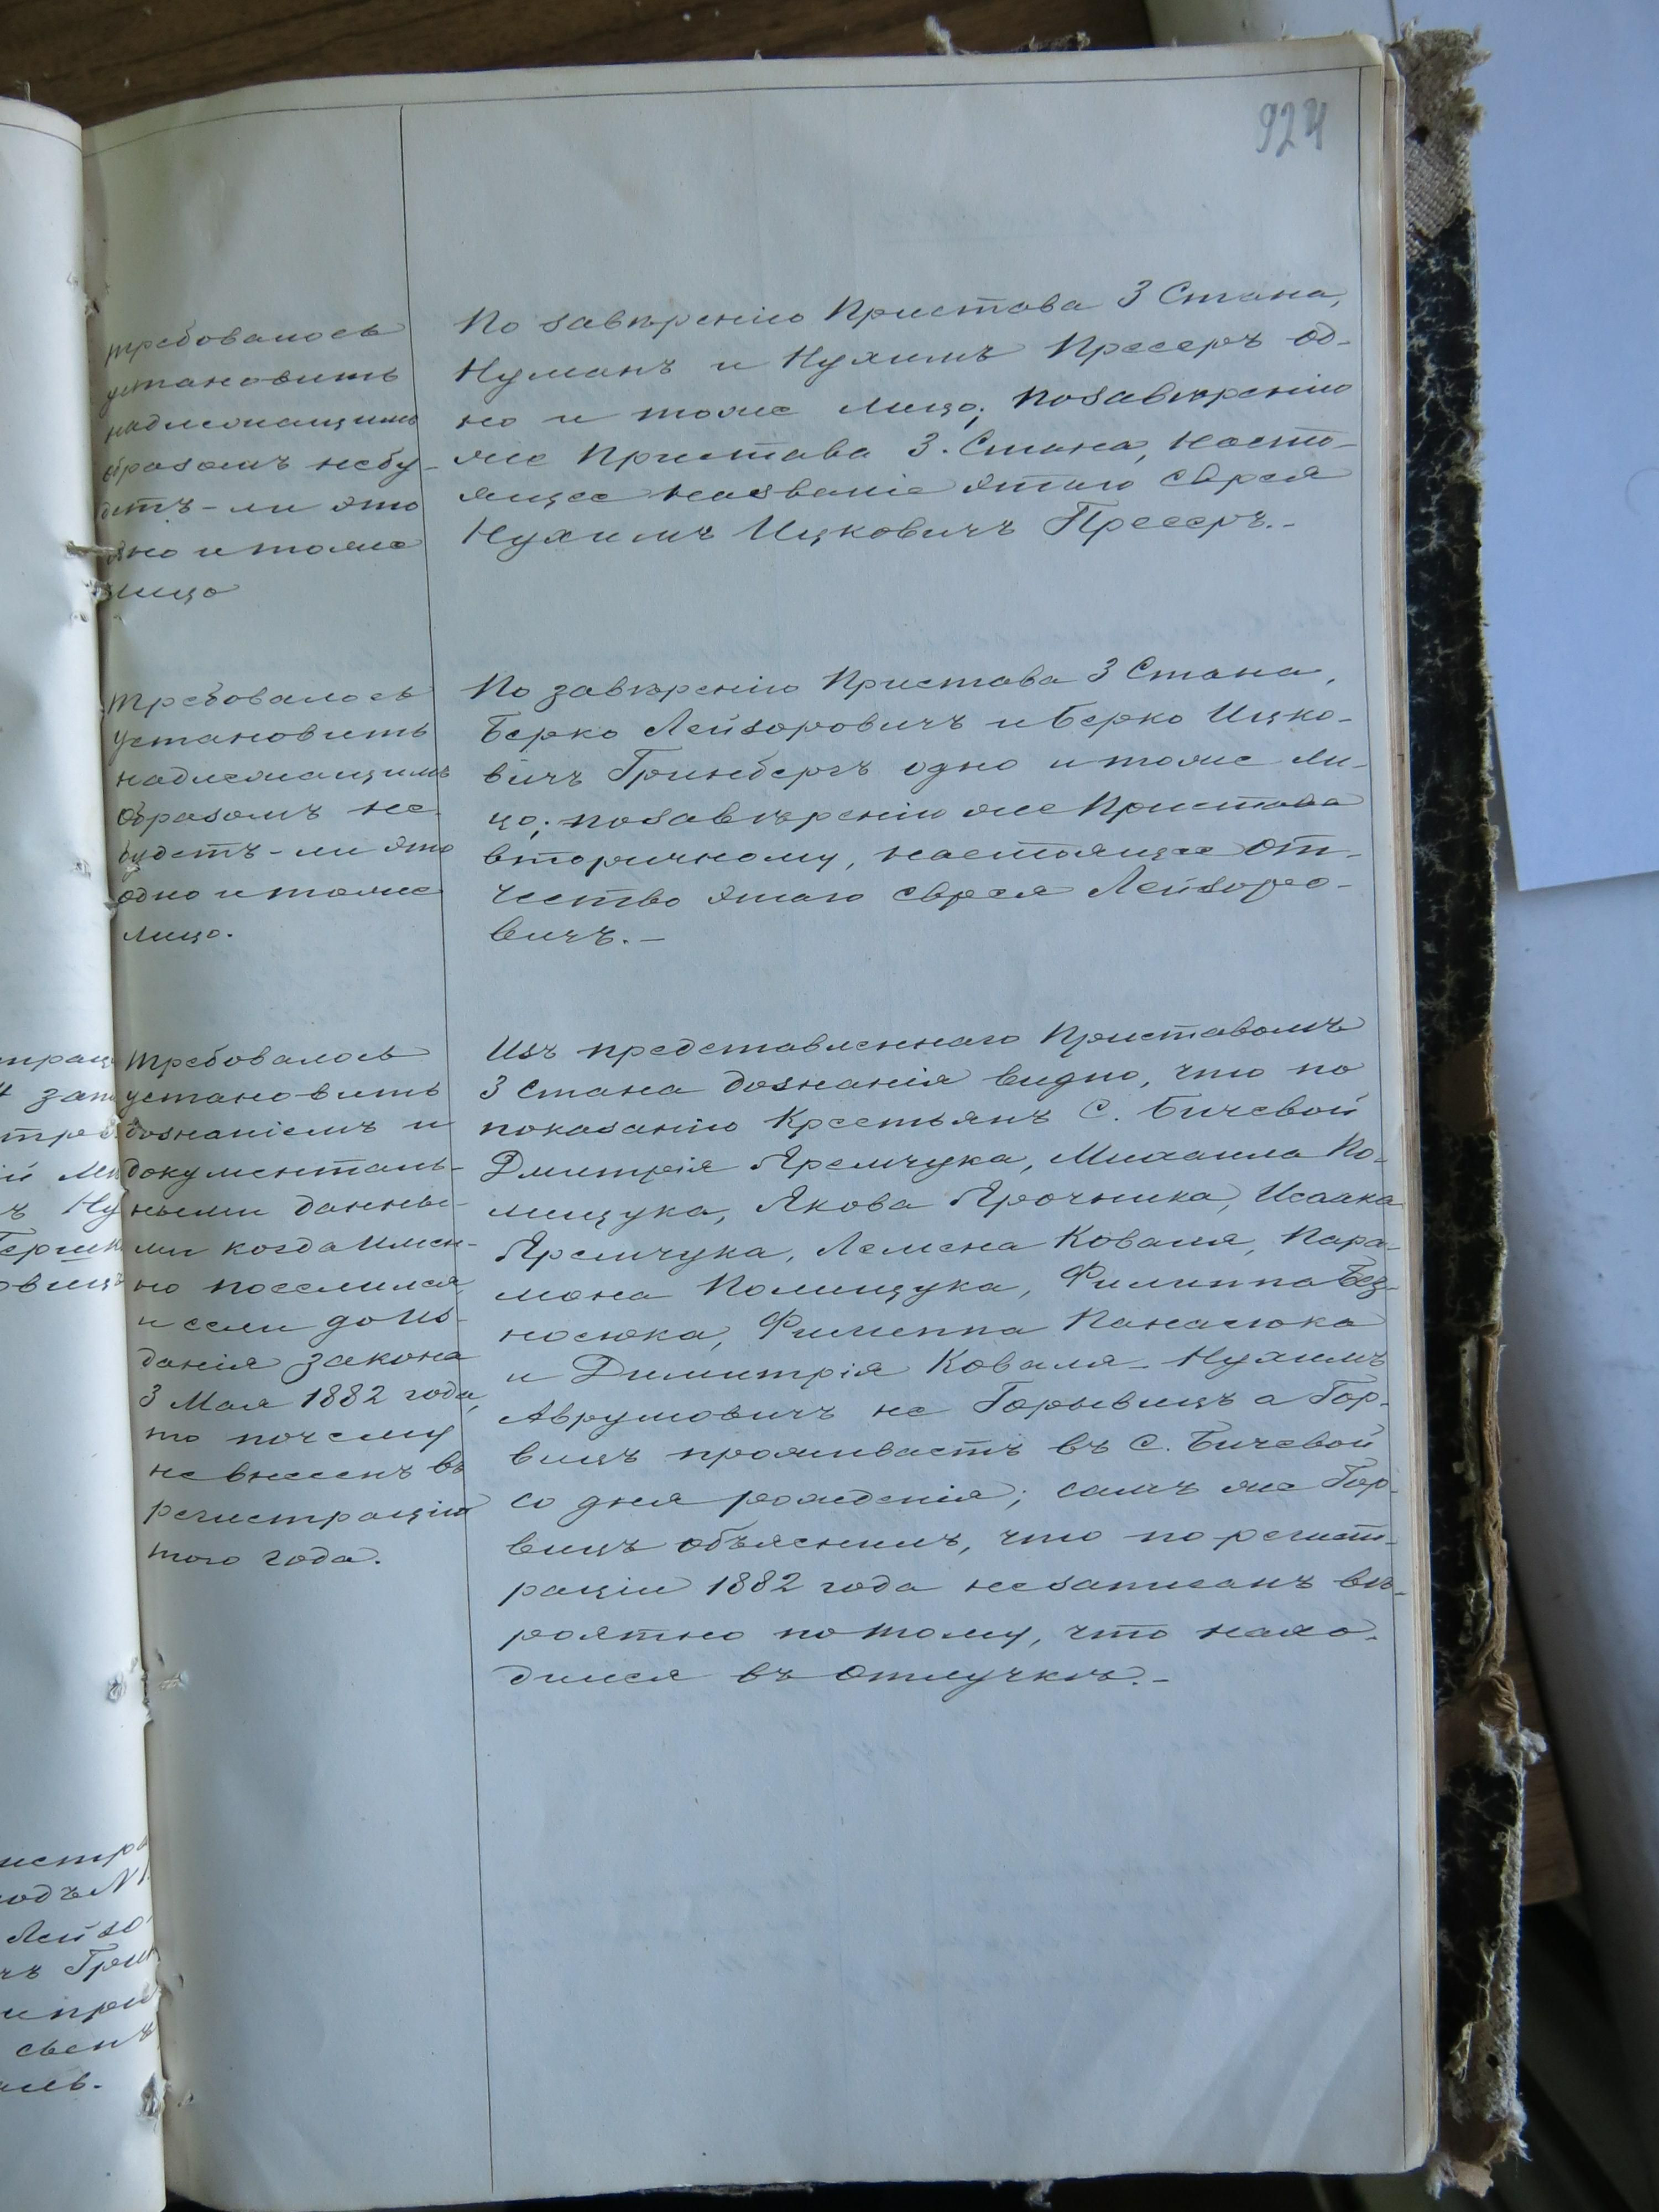 924
требовалось
установить
надлежащимъ
образомъ небу-
детъ-ли это
одно и тоже
лицо
По завѣренію Пристава 3 Стана,
Нуманъ и Нухимъ Прессеръ од-
но и тоже лицо; позавѣренію
же Пристава 3. Стана, насто-
ящее названіе этаго еврея
Нухимъ Ицковичъ Прессеръ.-
Требовалось
установить
надлежащимъ
образомъ не
будетъ-ли это
одно и тоже
лицо.
По завѣренію Пристава 3 Стана,
Берко Лейзоровичъ и Берко Ицко-
вичъ Гринбергъ одно и тоже ли-
цо; позавѣренію же Пристава
вторичному, настоящее от-
чество этаго еврея Лейзоро-
вичъ.-
Требовалось
установить
дознаніемъ и
документаль-
ными данны-
ми когда имен-
но поселился,
и если до Из-
данія закона
3 Мая 1882 года,
то почему
не внесенъ въ
регистрацію
того года.
Изъ представленнаго Приставомъ
3 Стана дознанія видно, что по
показанію Крестьянъ С. Бичевой
Дмитрія Яремчука, Михаила По-
лищука, Якова Ярочника, Исаака
Яремчука, Лемена Коваля, Пара-
мона Полищука, Филиппа Без-
носюка, Филиппа Панасюка
и Димитрія Коваля - Нухимъ
Аврумовичъ не Горывицъ а Гор-
вицъ проживаетъ въ С. Бичевой
со дня рожденія; самъ же Гор-
вицъ объяснилъ, что по регист-
раціи 1882 года незаписанъ вѣ-
роятно потому, что нахо-
дился въ отлучкѣ.-